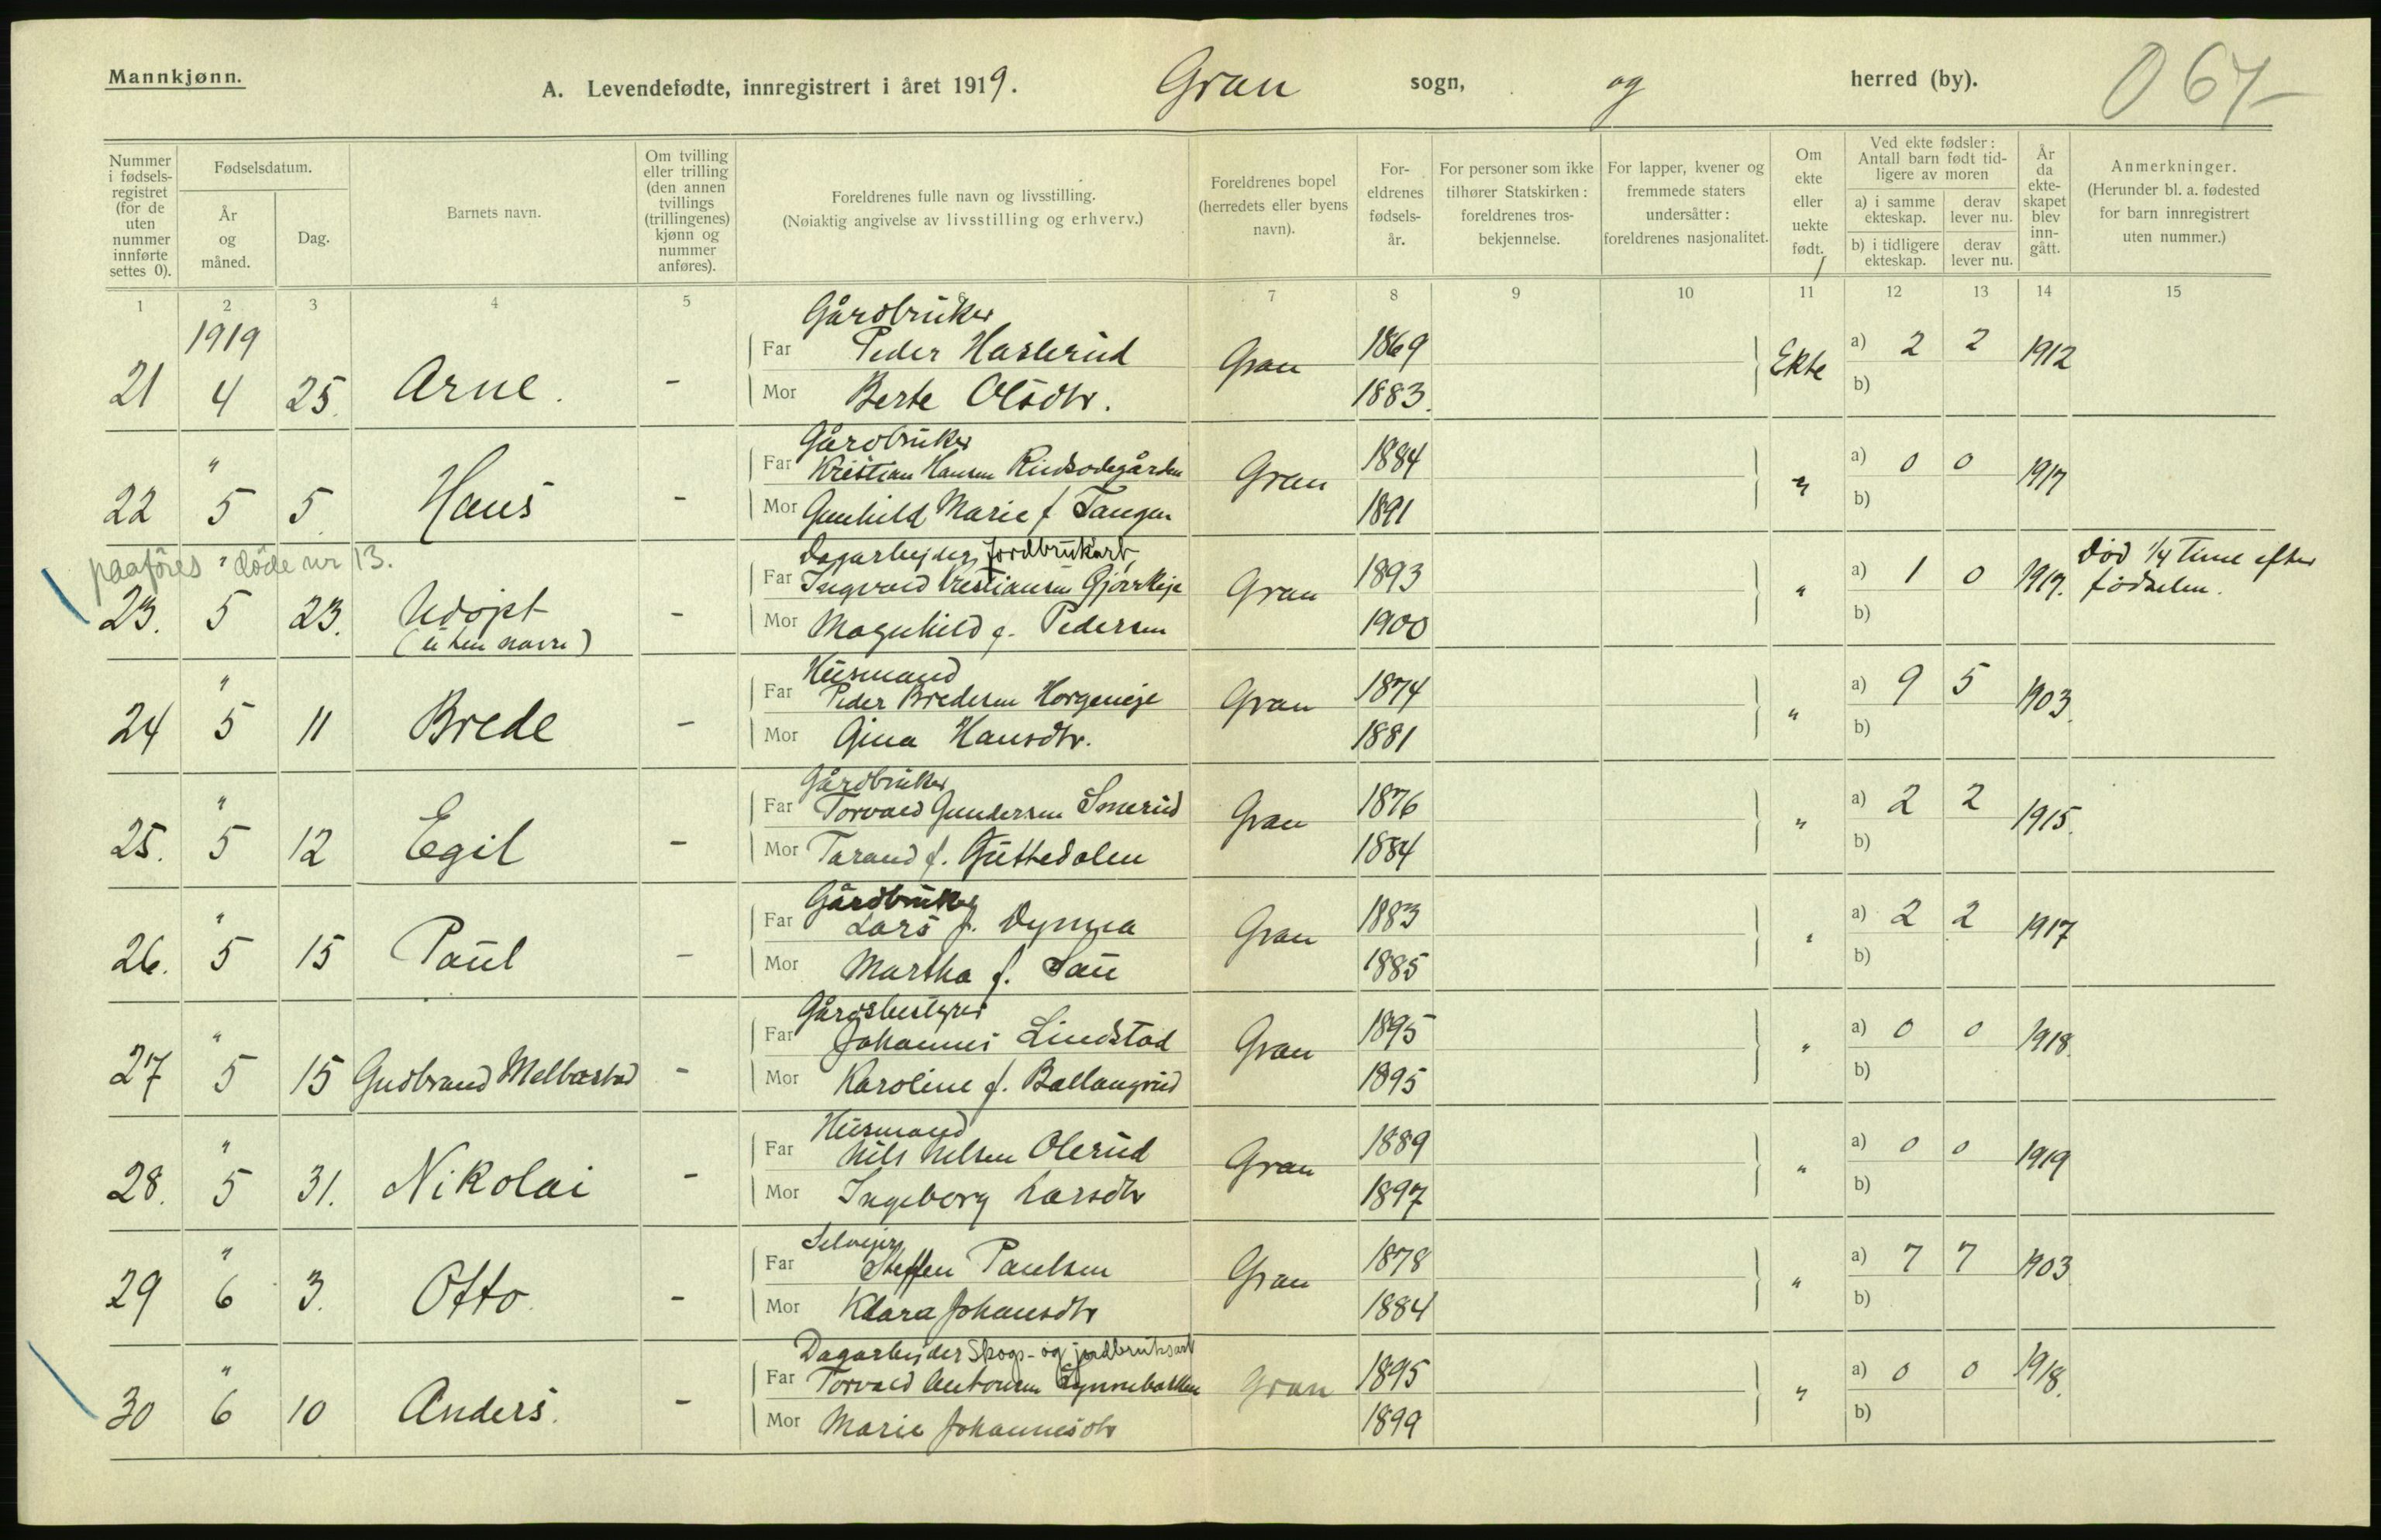 Mannkjønn.
A. Levendefødte, innregistrert i året 1919. Gran sogn, og herred (by). 067-
Nummer i fødselsregistret (for de uten nummer innførte settes 0).
Fødselsdatum.
År og måned.
Dag.
Barnets navn.
Om tvilling eller trilling (den annen tvillings (trillingenes) kjønn og nummer anføres).
Foreldrenes fulle navn og livsstilling.
(Nøiaktig angivelse av livsstilling og erhverv.)
Foreldrenes bopel (herredets eller byens navn).
Foreldrenes fødselsår.
For personer som ikke tilhører Statskirken: foreldrenes trosbekjennelse.
For lapper, kvener og fremmede staters undersåtter: foreldrenes nasjonalitet.
Om ekte eller uekte født.
Ved ekte fødsler: Antall barn født tidligere av moren
a) i samme ekteskap. derav lever nu.
b) i tidligere ekteskap. derav lever nu.
År da ekteskapet blev inngått.
Anmerkninger.
(Herunder bl. a. fødested for barn innregistrert uten nummer.)
1 2 3 4 5 6 7 8 9 10 11 12 13 14 15
1919 Gårdbruker
Far Peder Haslerud 1869 a) 2 2
21 4 25. Arne. - Gran Ekte 1912
Mor Berte Olsdtr. 1883. b)
Gårdbruker
" Far Kristian Hansen Rindsodegården 1884 a) 0 0
22 5 5 Hans - Gran " 1917
Mor Gunhild Marie f Tangen 1891 b)
paaføres "døde nr 13.
Dagarbejder, Jordbrukarb.
Far Ingvald Kristiansen Gjørkeje 1893 a) 1 0 Død 1/4 Time efter
23. 5 23. Udøpt - Gran " 1917. fødselen.
(uten navn) Mor Magnhild f. Pedersen 1900 b)
Husmand
" Far Peder Bredesen Horgeneje 1874 a) 9 5
24 5 11 Brede - Gran " 1903.
Mor Gina Hansdtr. 1881 b)
Gårdbruker
" Far Torvald Gundersen Smerud 1876 a) 2 2
25. 5 12 Egil - Gran " 1915.
Mor Tarand f. Guttedalen 1884 b)
Gårdbruker
" Far Lars J. Dynna 1883 a) 2 2
26. 5 15 Paul - Gran " 1917
Mor Martha f. Sau 1885 b)
Gårdsbestyrer
" Far Johannes Lindstad 1895 a) 0 0
27 5 15 Gudbrand Melbostad - Gran " 1918.
Mor Karoline f. Ballangrud 1895 b)
Husmand
" Far Nils Nilsen Olerud 1889 a) 0 0
28. 5 31. Nikolai - Gran " 1919
Mor Ingeborg Larsdtr 1897 b)
Selveier
" Far Steffen Paulsen 1878 a) 7 7
29 6 3. Otto - Gran " 1903
Mor Klara Johansdtr 1884 b)
Dagarbejder Skogs- og jordbruksarb
" Far Torvald Antonsen Lynnebakken 1895 a) 0 0
30 6 10 Anders. - Gran " 1918.
Mor Marie Johannesdtr 1899 b)